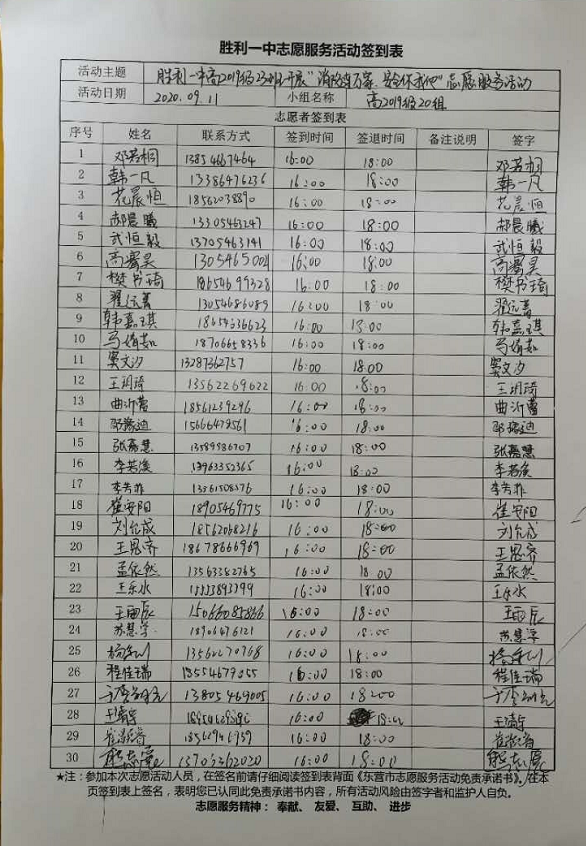 胜利一中志愿服务活动签到表
活动主题 胜利一中高2019级23班开展"消防 万家 安全 "志愿服务活动
活动日期 2020.09.11 小组名称 高2019级20组
志愿者签到表
序号 姓名 联系方式 签到时间 签退时间 备注说明 签字
1 邓若桐 13854667464 16:00 18:00 邓若桐
2 韩一凡 13386476236 16:00 18:00 韩一凡
3 花晨恒 18562038890 16:00 18:00 花晨恒
4 郝晨曦 13305463247 16:00 18:00 郝晨曦
5 武恒毅 13705463141 16:00 18:00 武恒毅
6 16:00 18:00
7 樊书琦 18654699328 16:00 18:00 樊书琦
8 翟远菁 13054686089 16:00 18:00 翟远菁
9 韩嘉琪 18654636623 16:00 18:00 韩嘉琪
10 马婧茹 18706658336 16:00 18:00 马婧茹
11 窦文汐 13287362757 16:00 18:00 窦文汐
12 王玥琦 13562269622 16:00 18:00 王玥琦
13 曲沂蕾 18561239296 16:00 18:00 曲沂蕾
14 15666478561 16:00 18:00
15 张嘉慧 13589986707 16:00 18:00 张嘉慧
16 李若涣 13963352365 16:00 18:00 李若涣
17 李芳菲 13361508276 16:00 18:00 李芳菲
18 崔安阳 18905469775 16:00 18:00 崔安阳
19 刘允成 18562068216 16:00 18:00 刘允成
20 王思齐 18678666969 16:00 18:00 王思齐
21 孟依然 13563382765 16:00 18:00 孟依然
22 王乐水 13333893799 16:00 18:00 王乐水
23 15066083866 16:00 18:00
24 苏慧字 18906476121 16:00 18:00 苏慧字
25 13562270768 16:00 18:00
26 程佳瑞 18554679055 16:00 18:00 程佳瑞
27 13805469005 16:00 18:00
28 16:00 18:00
29 18560946959 16:00 18:00
30 13706362020 16:00 18:00
★注：参加本次志愿活动人员，在签名前请仔细阅读签到表背面《东营市志愿服务活动免责承诺书》。在本
页签到表上签名，表明您已认同此免责承诺书内容，所有活动风险由签字者和监护人自负。
志愿服务精神： 奉献、 友爱、 互助、 进步